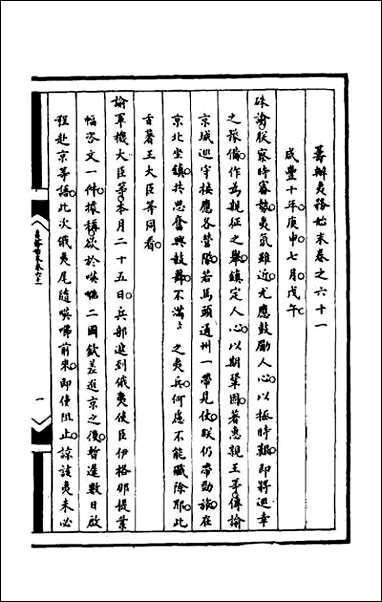 籌辦夷務始末卷之六十一
咸豐十年庚申七月戊午
硃諭朕察時審勢夷氛雖近尤應鼓勵人心以拯時艱即將巡幸
之預備作為親征之舉鎮定人心以期鞏固著惠親王等傳諭
京城巡守接應各營隊若馬頭通州一帶見仗朕仍帶勁旅在
京北坐鎮共思奮興鼓舞不滿 之夷兵何慮不能殲除耶此
旨著王大臣等同看
諭軍機大臣等本月二十五日兵部遞到俄夷使臣伊格那提業
幅咨文一件據稱欲於𠸄咈二國欽差進京之後暫遲數日啟
程赴京等語此次俄夷尾隨𠸄咈前來即使阻止諒該夷未必
夷務始末卷六十一
一